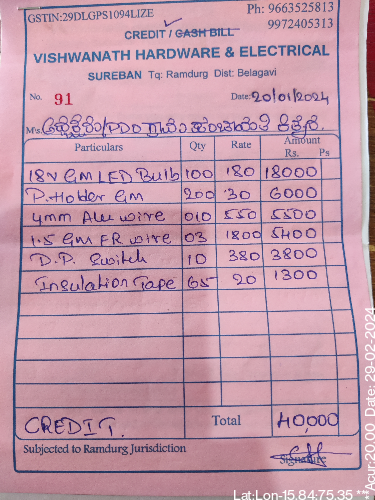 GSTIN:29DLGPS1094LIZE
Ph: 9663525813
9972405313
CREDIT / CASH BILL
VISHWANATH HARDWARE & ELECTRICAL
SUREBAN Tq: Ramdurg Dist: Belagavi
No. 91 Date: 20/01/2024
M/s /PDO ಗ್ರಾಮ ಪಂಚಾಯತಿ
Particulars Qty Rate Amount
Rs. Ps
18v GM LED Bulb 100 180 18000
P. Holder GM 200 30 6000
4mm Alu wire 010 550 5500
1.5 GM FR wire 03 1800 5400
D.P. Switch 10 380 3800
Insulation Tape 65 20 1300
CREDIT. Total 40,000
Subjected to Ramdurg Jurisdiction
Signature
Lat:Lon-15.84-75.35 ***
Acur:20.00 Date: 29-02-2024